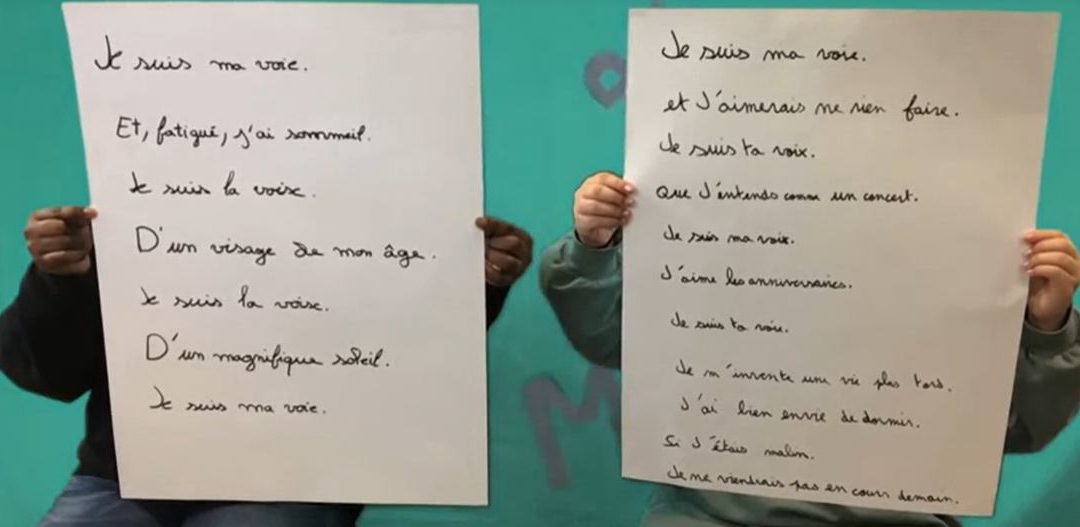 Je suis ma voie.
Et, fatigué, j'ai sommeil.
Je suis la voix.
D'un visage de mon âge.
Je suis la voix.
D'un magnifique soleil.
Je suis ma voie.
Je suis ma voie.
et J'aimerais ne rien faire.
Je suis ta voix.
Que J'entends comme un concert.
Je suis ma voix.
J'aime les anniversaires.
Je suis ta voie.
Je m'invente une vie plus tard.
J'ai bien envie de dormir.
Si J'étais malin.
Je ne viendrais pas en cours demain.